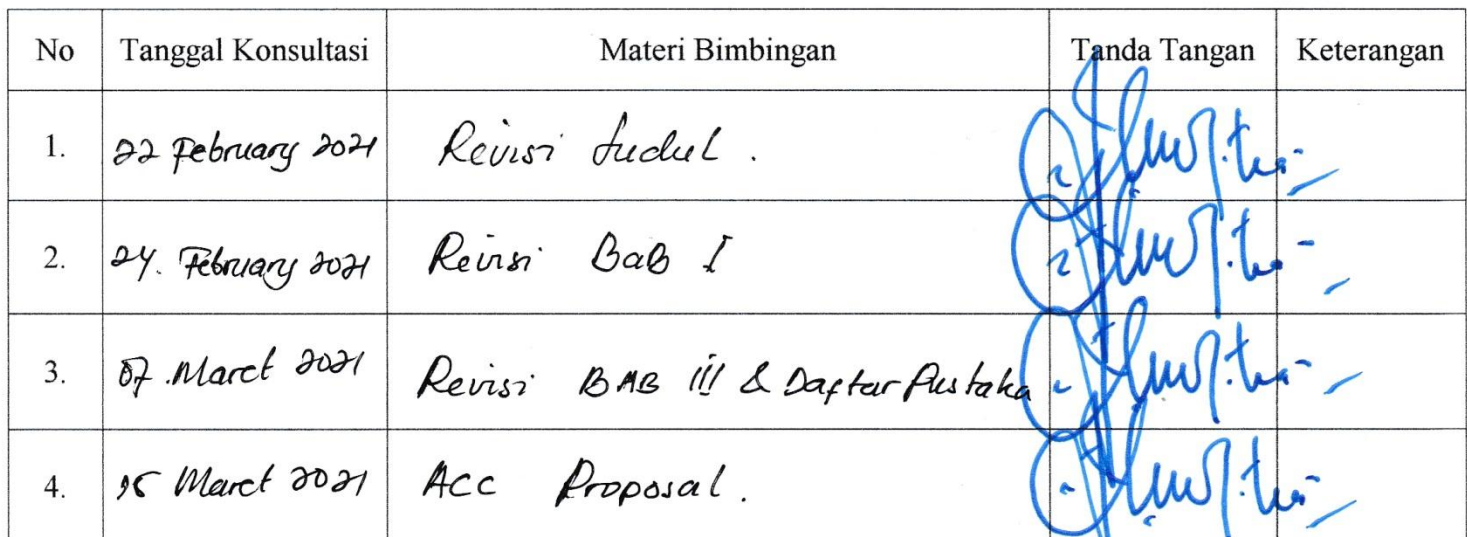 No Tanggal Konsultasi Materi Bimbingan Tanda Tangan Keterangan
1. 22 February 2021 Revisi Judul.
2. 24. February 2021 Revisi Bab I
3. 07. Maret 2021 Revisi BAB III & Daftar Pustaka
4. Maret 2021 Acc Proposal.